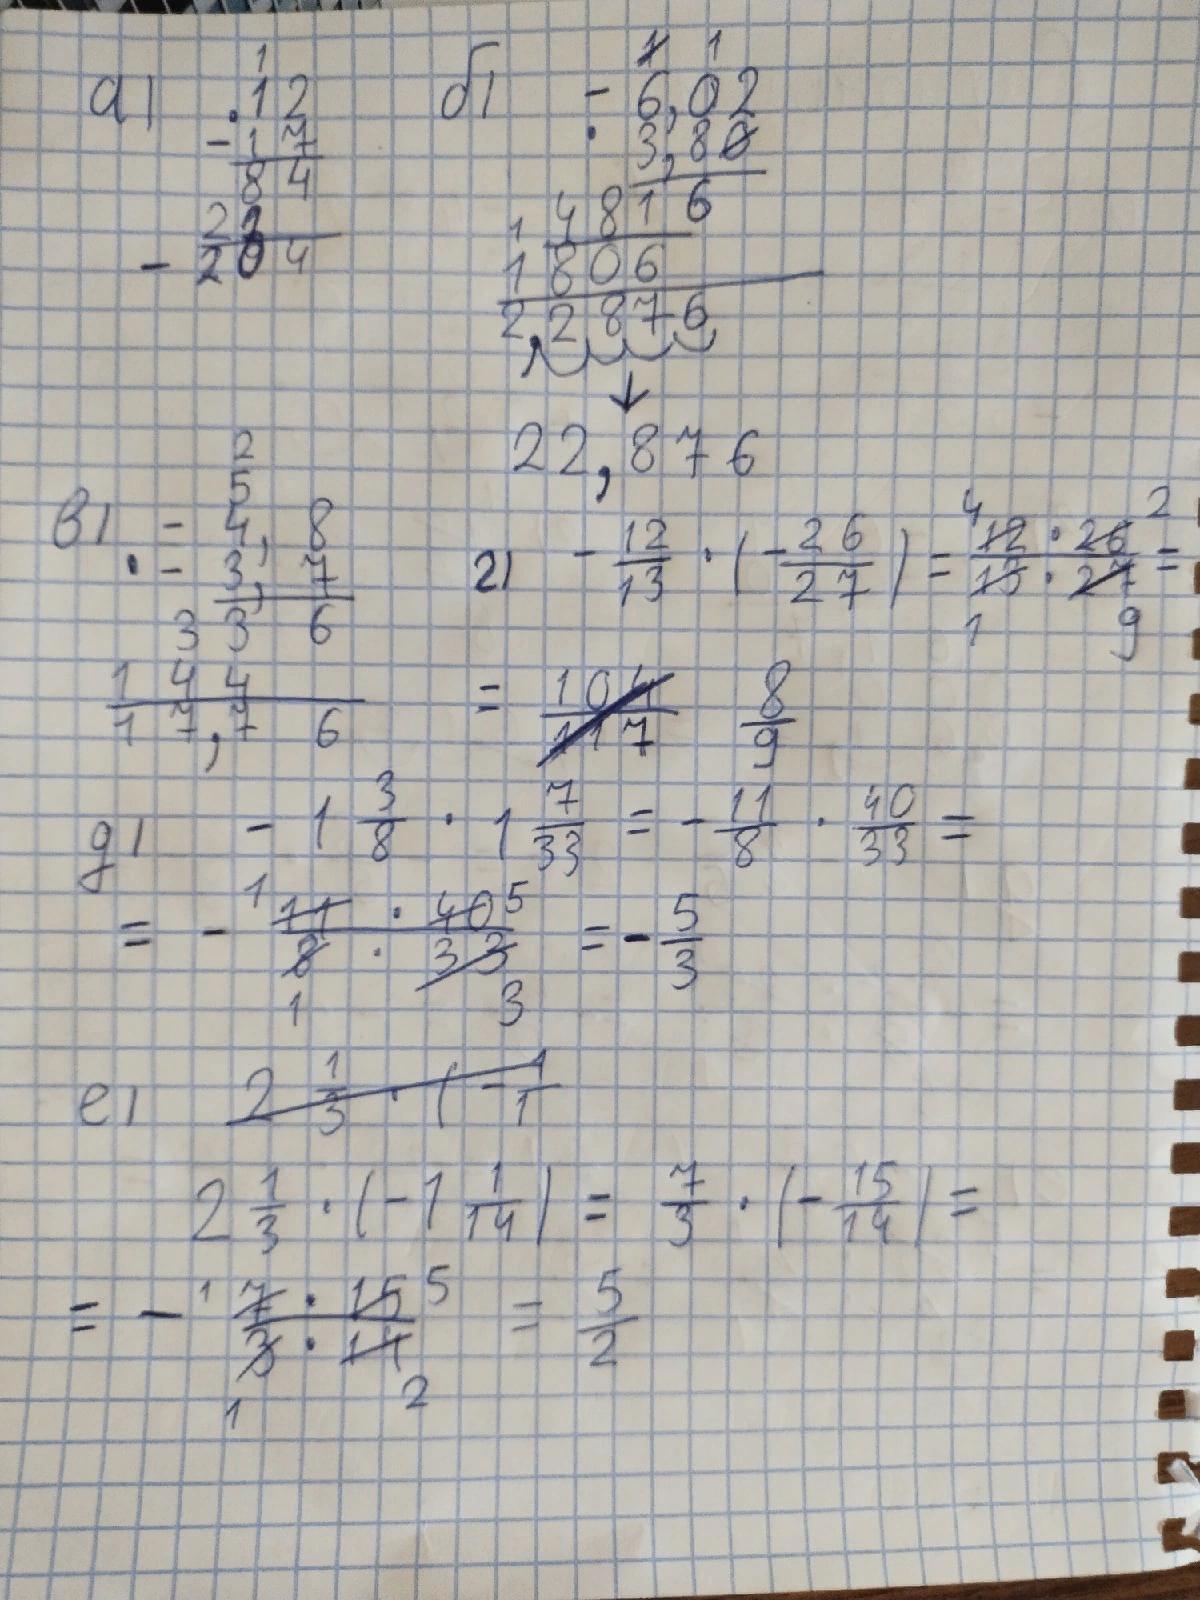 1
а) · 12
- 17
84
22
- 204
1 1
б) - 6,02
· 3,80
4816
1
1806
2,2876
22,876
2
5
в) - 4,8
· - 3,7
3 3 6
1 4 4
1 7,7 6
г) - 12/13 · (- 26/27) = 4 12 · 26 2 / 13 · 27 =
1 9
= 104/117 8/9
д) - 1 3/8 · 1 7/33 = - 11/8 · 40/33 =
= - 1 11 · 40 5 / 8 · 33 = - 5/3
1 3
е) 2 1/3 · (- 1/1
2 1/3 · (- 1 1/14) = 7/3 · (- 15/14) =
= - 1 7 · 15 5 / 3 · 14 = 5/2
1 2